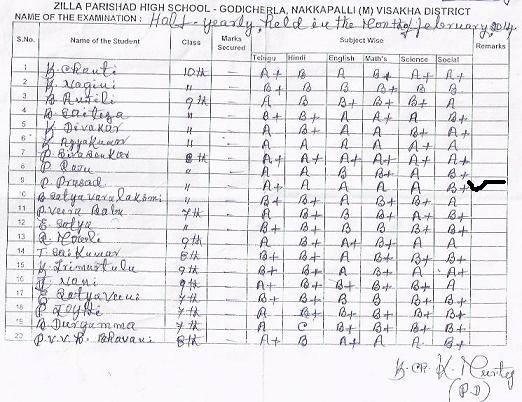 ZILLA PARISHAD HIGH SCHOOL - GODICHERLA, NAKKAPALLI (M) VISAKHA DISTRICT
NAME OF THE EXAMINATION : Half - yearly, held in the Month of february, 2014.
S.No. Name of the Student Class Marks Secured Subject Wise Remarks
Telugu Hindi English Math's Science Social
1 K. Chanti 10th — A+ B A B+ A+ A+
2 K. Nagini " — B+ B B B+ B B
3 9th — A B B B+ B+ A
4 " — B+ B+ A A+ A B+
5 K. Divakar " — A B+ A A B+ A
6 " — A A A B+ A A+
7 8th — A+ A+ A+ A+ A+ A+
8 P. Raju " — A A B B+ A B+
9 P. Prasad " — A+ A A A A B+
10 B. Satyavaralakshmi " — B+ B+ A B+ B+ A
11 P. Veera Babu 7th — A B+ B B+ A B+
12 E. Satya " — B+ B+ B B B+ B+
13 9th — A B+ A+ B+ A A
14 T. Sai Kumar 8th — B+ A B+ A B+ A
15 9th — B+ B+ A B+ B+ A+
16 9th — A B+ B+ A A B+
17 7th — B+ B+ B B B+ B+
18 7th — A B+ B+ A B+ A
19 B. Durgamma 7th — A C B+ B+ B+ B+
20 P. V. V. B. Bhavani 8th — A+ B A+ A A B+
K. Ch. K. Murty
(P.D)